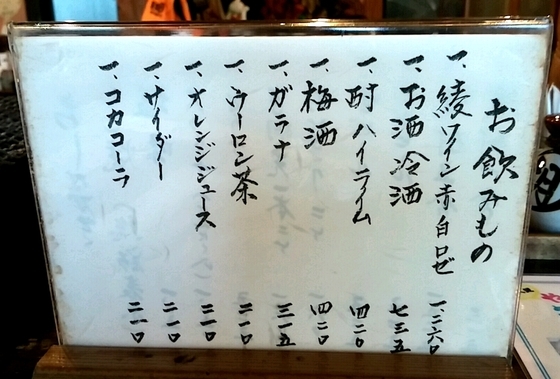 お飲みもの
一、綾ワイン赤白ロゼ 一、二六〇
一、お酒 冷酒 七三五
一、酎ハイライム 四二〇
一、梅酒 四二〇
一、ガラナ 三一五
一、ウーロン茶 二一〇
一、オレンジジュース 二一〇
一、サイダー 二一〇
一、コカコーラ 二一〇